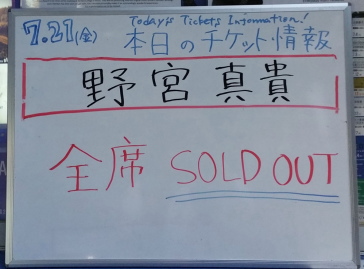 7.21(金)
Today's Tickets Information!
本日のチケット情報
野宮真貴
全席 SOLD OUT